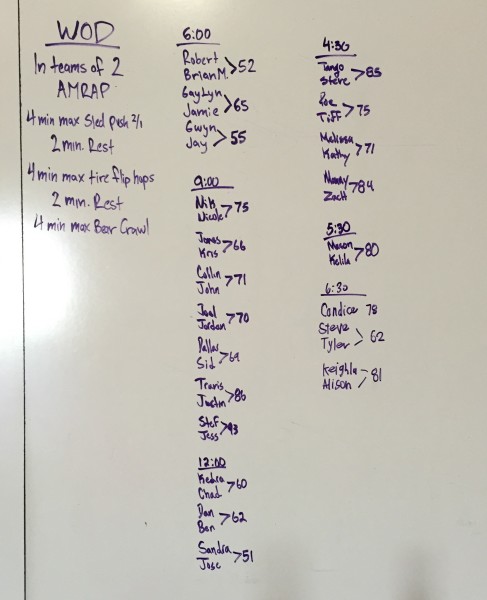 WOD
In teams of 2
AMRAP
4 min max Sled push 2/1
2 min. Rest
4 min max tire flip hops
2 min. Rest
4 min max Bear Crawl
6:00
Robert
Brian M. >52
Gaylyn
Jamie >65
Gwyn
Jay >55
9:00
Nik
Nicole >75
Jonas
Kris >66
Collin
John >71
Joel
Jordan >70
Dallas
Sid >69
Travis
Justin >86
Stef
Jess >93
12:00
Kedra
Chad >60
Dan
Ben >62
Sandra
Jose >51
4:30
Tango
Steve >85
Zoe
Tiff >75
Melissa
Kathy >71
Manny
Zach >84
5:30
Mason
Kelik >80
6:30
Candice 78
Steve
Tyler > 62
Keighla
Alison > 81